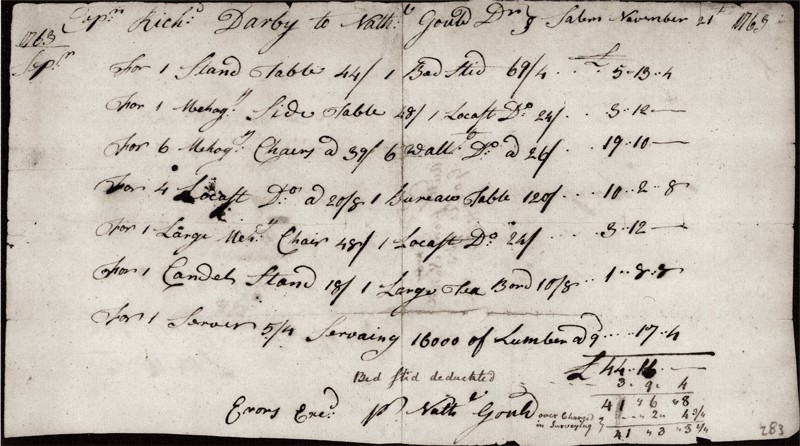 Capn. Richd. Darby to Nathl. Gould Dr Salem November 21st 1763
1763
Sepr.
For 1 Stand Table 44/ 1 Bed Stid 69/4 ... £ 5..13..4
For 1 Mehogy. Side Table 48/ 1 Locast Do. 24/ .. 3..12—
For 6 Mehogy. Chairs a 39/ 6 Wallt. Do. a 26/ .. 19..10—
For 4 Locast Do. ad 20/8 1 Bureaw Table 120/ .. 10..2..8
For 1 Large Mehy. Chair 48/ 1 Locast Do. 24/ ... 3..12—
For 1 Candel Stand 18/ 1 Large Tea Bord 10/8 .. 1..8..8
For 1 Server 5/4 Servaing 16000 of Lumber ad 9 .... 17..4
£ 44..16..—
Bed Stid deduckted 3.. 9.. 4
41 " 6 " 8
Erors Exed. pr Nathl. Gould over Charged in Surveying " 2 " 4 3/4
41 " 3 " 3 1/4
283